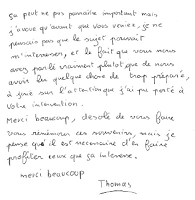 Ça peut ne pas paraître important mais
j'avoue qu'avant que vous veniez, je ne
pensais pas que le sujet pouvait
m'intéresser, et le fait que vous nous
avez parlé vraiment plutôt que de nous
avoir lu quelque chose de trop préparé,
a joué sur l'attention que j'ai pu porté à
votre intervention.
Merci beaucoup, désolé de vous faire
vous remémorer ces souvenirs, mais je
pense que il est nécessaire d'en faire
profiter ceux que ça intéresse.
merci beaucoup
Thomas